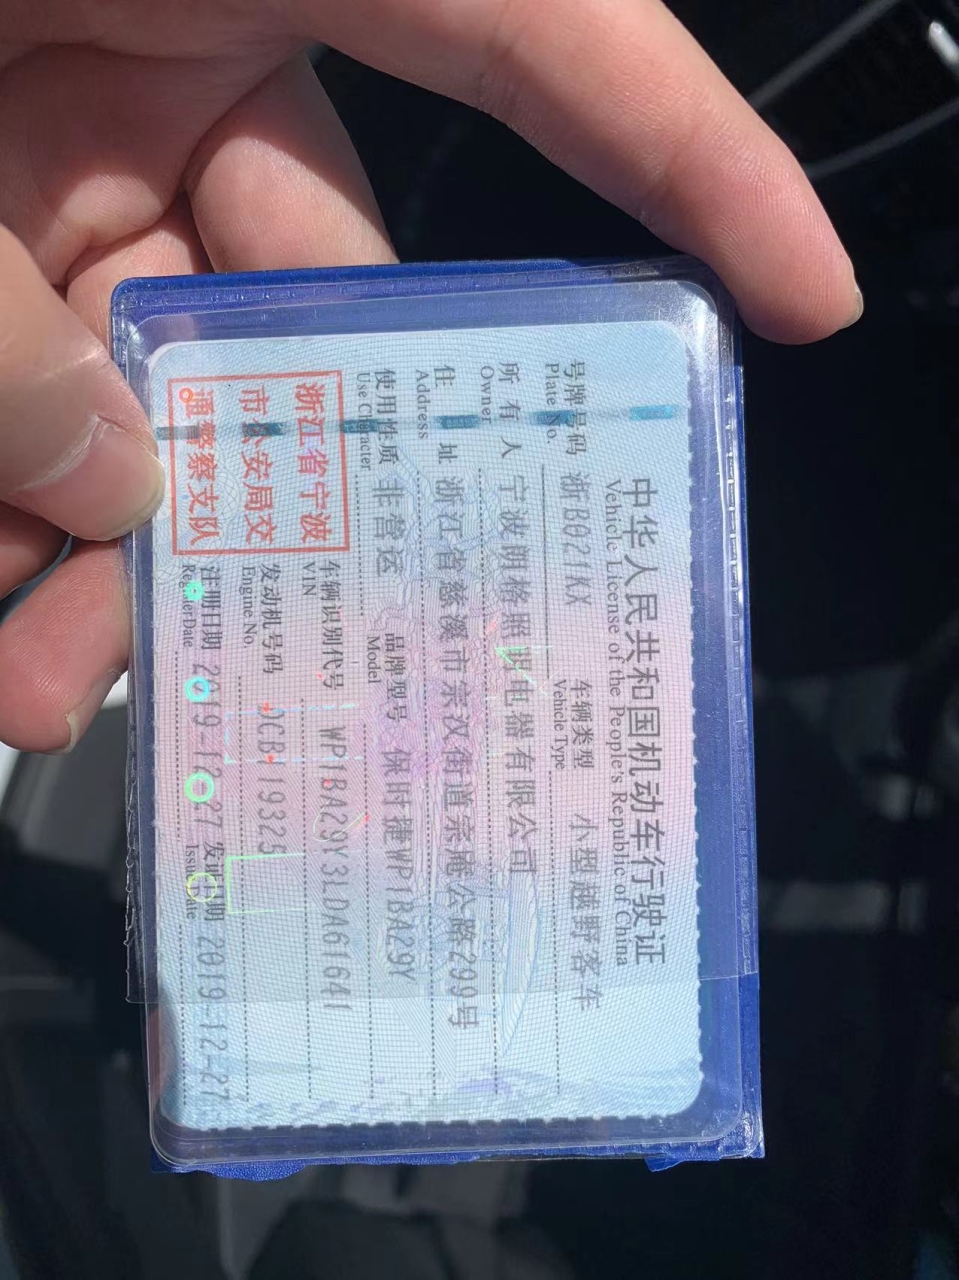 中华人民共和国机动车行驶证
Vehicle License of the People's Republic of China
号牌号码 浙B021KX 车辆类型 小型越野客车
Plate No. Vehicle Type
所有人 宁波朗格照明电器有限公司
Owner
住址 浙江省慈溪市宗汉街道宗庵公路299号
Address
使用性质 非营运 品牌型号 保时捷WP1BA29Y
Use Character Model
浙江省宁波
市公安局交
通警察支队
车辆识别代号 WP1BA29Y3LDA61641
VIN
发动机号码 DCB119325
Engine No.
注册日期 2019-12-27 发证日期 2019-12-27
Register Date Issue Date